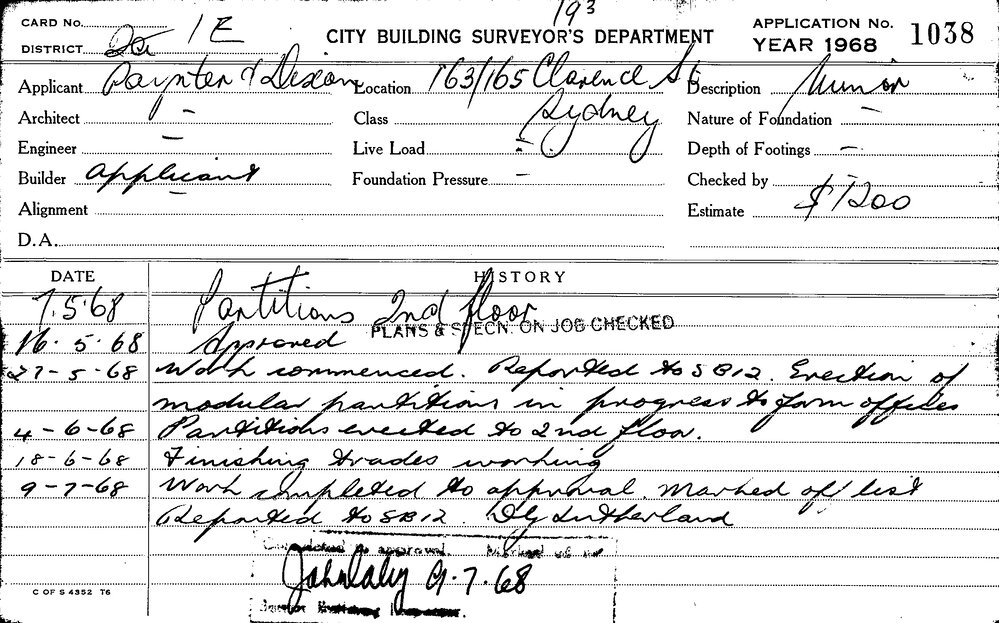 193
CARD No. 1E
DISTRICT
CITY BUILDING SURVEYOR'S DEPARTMENT
APPLICATION No. 1038
YEAR 1968
Applicant Paynter & Dixon Location 163/165 Clarence St Description Minor
Architect - Class Sydney Nature of Foundation -
Engineer - Live Load - Depth of Footings -
Builder Applicant Foundation Pressure - Checked by
Alignment - Estimate $1200
D.A.
DATE HISTORY
7.5.68 Partitions 2nd floor
PLANS & SPECN. ON JOB CHECKED
16.5.68 Approved
27-5-68 Work commenced. Reported to SB12. Erection of
modular partitions in progress to form offices
4-6-68 Partitions erected to 2nd floor.
18-6-68 Finishing trades working
9-7-68 Work completed to approval. Marked off list
Reported to SB12. DG Sutherland
Completed to approval. Marked off
John Daly 9.7.68
C OF S 4352 T6